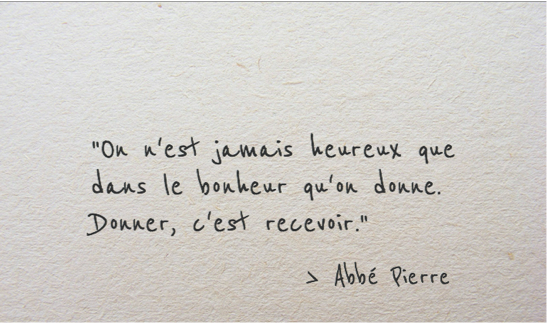 "On n'est jamais heureux que
dans le bonheur qu'on donne.
Donner, c'est recevoir."
> Abbé Pierre